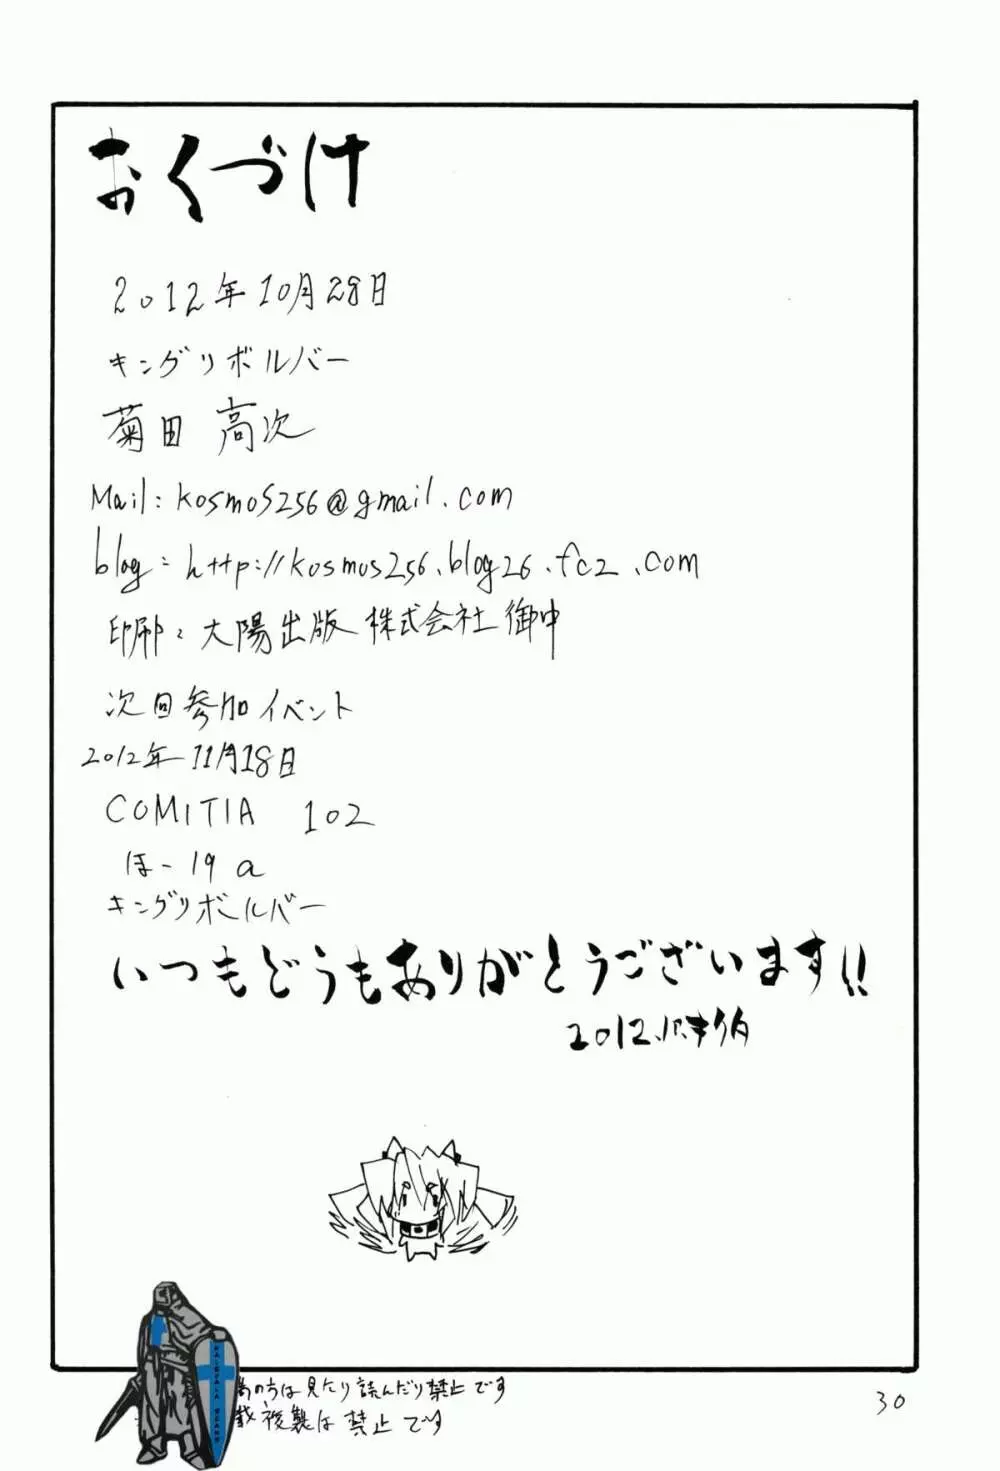 おくづけ
2012年10月28日
キングリボルバー
菊田 高次
Mail: kosmos256@gmail.com
blog: http://kosmos256.blog26.fc2.com
印刷: 大陽出版 株式会社 御中
次回参加イベント
2012年 11月18日
COMITIA 102
ほ-19a
キングリボルバー
いつもどうもありがとうございます!!
2012.
の方は見たり読んだり禁止です
複製は禁止です
30